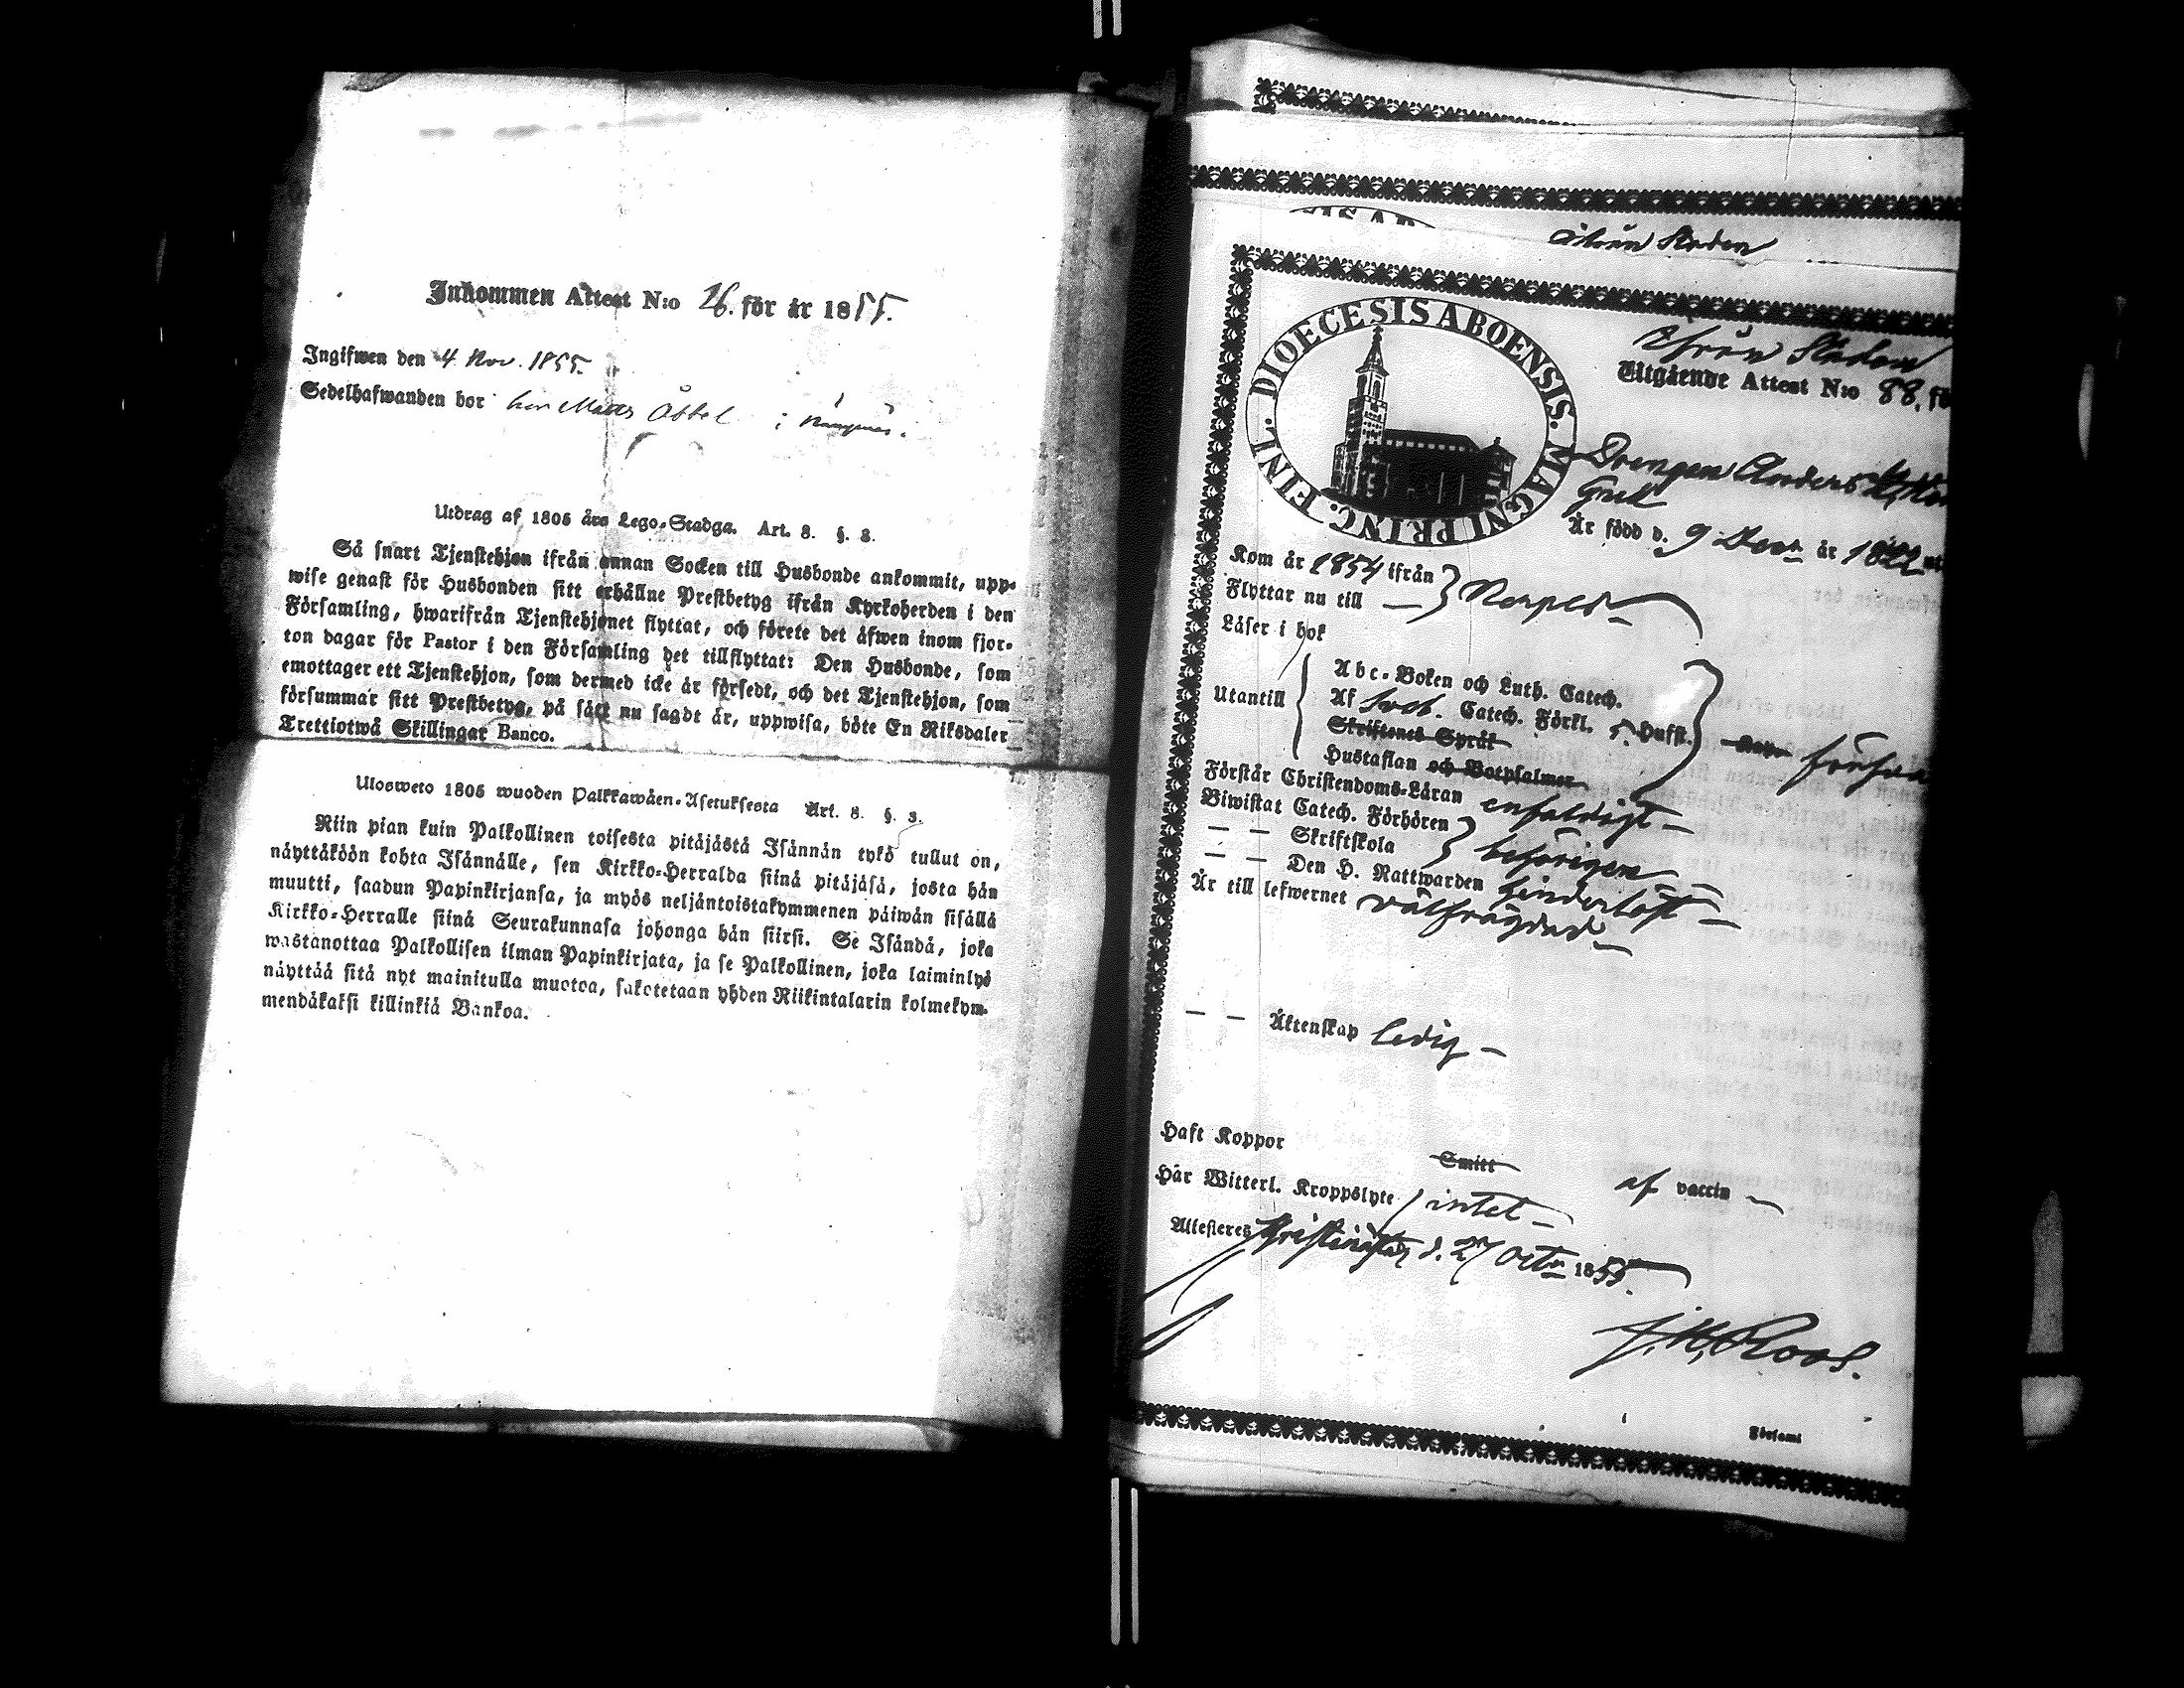 Inkommen Attest N:o 26. för år 1855.
Ingifwen den 4 Nov. 1855.
Sedelhafwanden bor hos Matts Åbbel i
Utdrag af 1805 års Lego-Stadga. Art. 8. §. 3.
Så snart Tjenstehjon ifrån annan Socken till Husbonde ankommit, upp-
wise genast för Husbonden sitt erhållne Prestbetyg ifrån Kyrkoherden i den
Församling, hwarifrån Tjenstehjonet flyttat, och förete det äfwen inom fjor-
ton dagar för Pastor i den Församling det tillflyttat: Den Husbonde, som
emottager ett Tjenstehjon, som dermed icke är försedt, och det Tjenstehjon, som
försummar sitt Prestbetyg, på sätt nu sagdt är, uppwisa, böte En Riksdaler
Trettiotwå Skillingar Banco.
Ulosweto 1805 wuoden Palkkawäen-Asetuksesta Art. 8. §. 3.
Niin pian kuin Palkollinen toisesta pitäjästä Isännän tykö tullut on,
näyttäköön kohta Isännälle, sen Kirkko-Herralda siinä pitäjäsä, josta hän
muutti, saadun Papinkirjansa, ja myös neljäntoistakymmenen päiwän sisällä
Kirkko-Herralle siinä Seurakunnasa johonga hän siirsi. Se Isändä, joka
wastanottaa Palkollisen ilman Papinkirjata, ja se Palkollinen, joka laiminlyö
näyttää sitä nyt mainitulla muotoa, sakotetaan yhden Riikintalarin kolmekym-
mendäkaksi killinkiä Bankoa.
ifrån Staden
DIOECESIS ABOENSIS. MAGNI PRINC. FINL.
Ifrån Staden
Utgående Attest N:o 88. fö
Drengen Anders
Är född d. 9 Decr år 1822
Kom år 1854 ifrån } Nerpes
Flyttar nu till —
Läser i bok
Utantill
Abc-Boken och Luth. Catech.
Af Sveb. Catech. Förkl. 5. Hufst.
Skriftenes Språk
Hustaflan och Botpsalmer
Förstår Christendoms-Läran enfaldigt —
Biwistat Catech. Förhören } behörigen —
— — Skriftskola
— — Den H. Nattwarden hinderlöst —
Är till lefwernet välfrägdad —
— — Äktenskap ledig —
Haft Koppor Smitt af vaccin —
Här Witterl. Kroppslyte intet —
Attesteres Kristinestad d. 27 Octr 1855.
J. W. Roos.
Församl